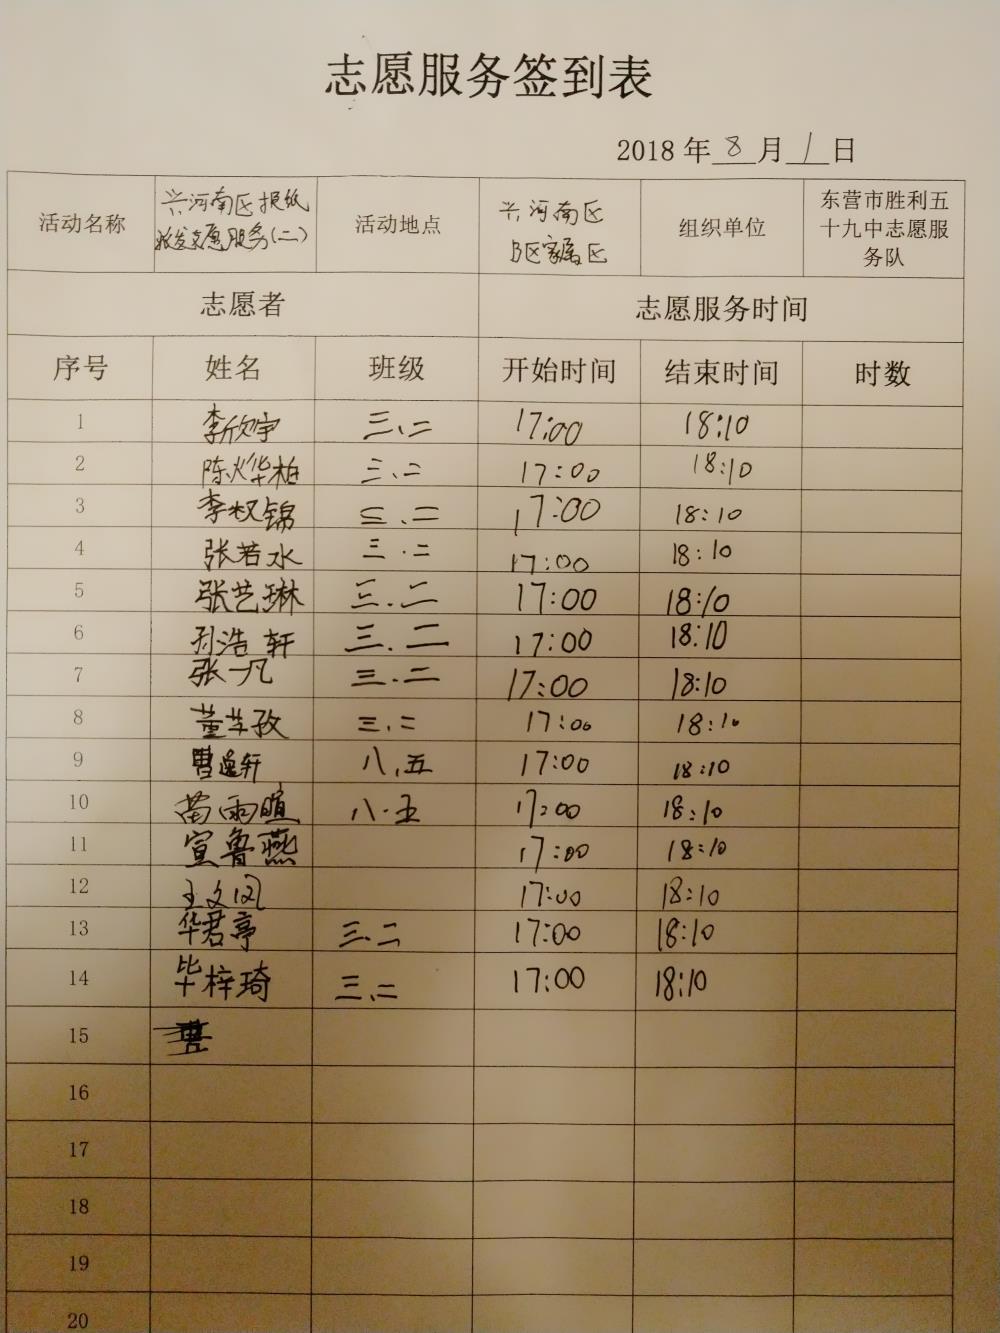 志愿服务签到表
2018 年 8 月 1 日
活动名称 兴河南区报纸派发志愿服务(二) 活动地点 兴河南区B区家属区 组织单位 东营市胜利五十九中志愿服务队
志愿者 志愿服务时间
序号 姓名 班级 开始时间 结束时间 时数
1 李欣宇 三、二 17:00 18:10
2 陈烨柏 三、二 17:00 18:10
3 李权锦 三、二 17:00 18:10
4 张若水 三.二 17:00 18:10
5 张艺琳 三.二 17:00 18:10
6 孙浩轩 三.二 17:00 18:10
7 张一凡 三.二 17:00 18:10
8 董芊孜 三.二 17:00 18:10
9 曹逸轩 八.五 17:00 18:10
10 苗雨暄 八.五 17:00 18:10
11 宣鲁燕 17:00 18:10
12 王文凤 17:00 18:10
13 华君亭 三.二 17:00 18:10
14 毕梓琦 三.二 17:00 18:10
15
16
17
18
19
20